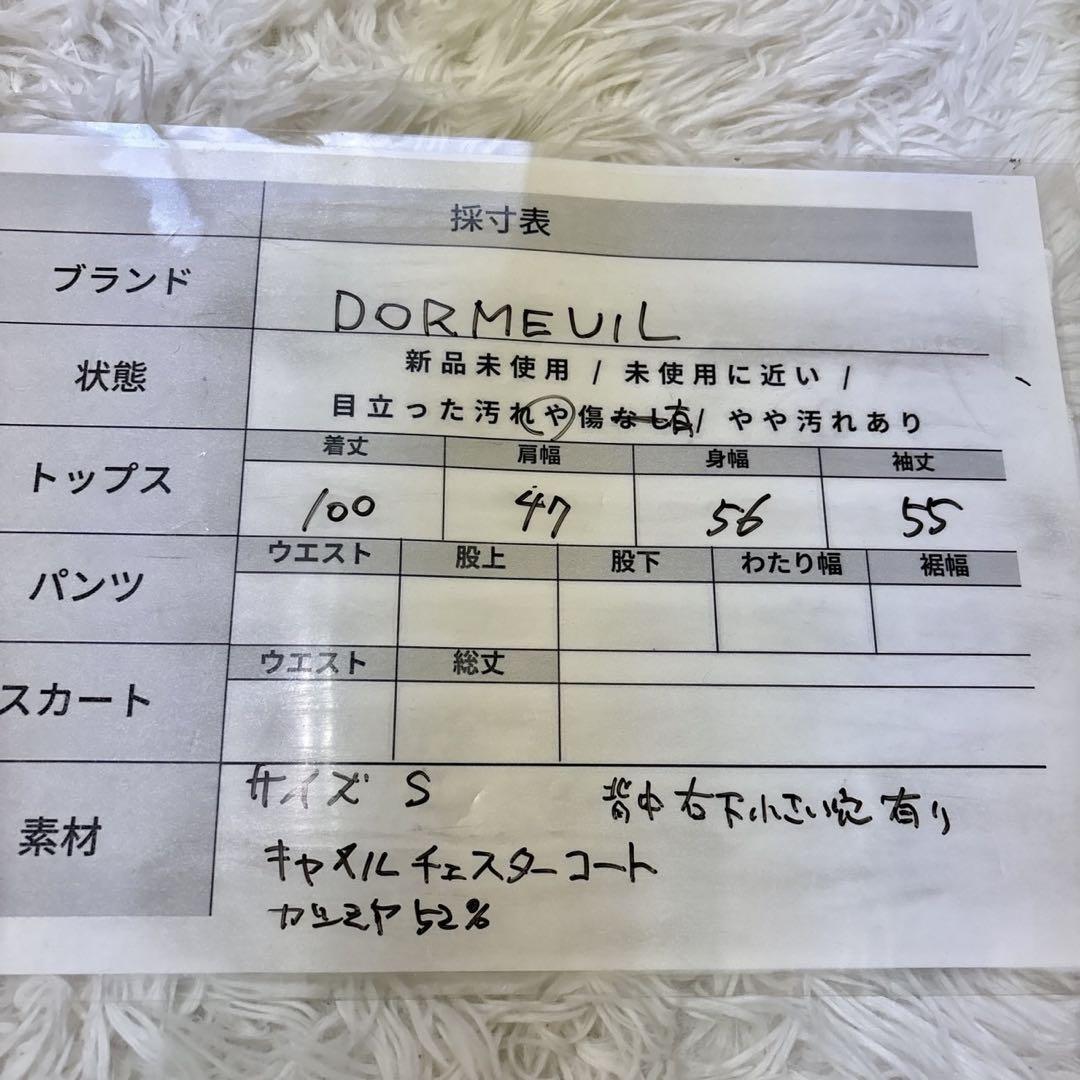 採寸表
ブランド DORMEUIL
状態 新品未使用 / 未使用に近い /
目立った汚れや傷有/ やや汚れあり
トップス 着丈 肩幅 身幅 袖丈
100 47 56 55
パンツ ウエスト 股上 股下 わたり幅 裾幅
スカート ウエスト 総丈
素材 サイズ S 背中右下小さい穴有り
キャメルチェスターコート
カシミヤ52%